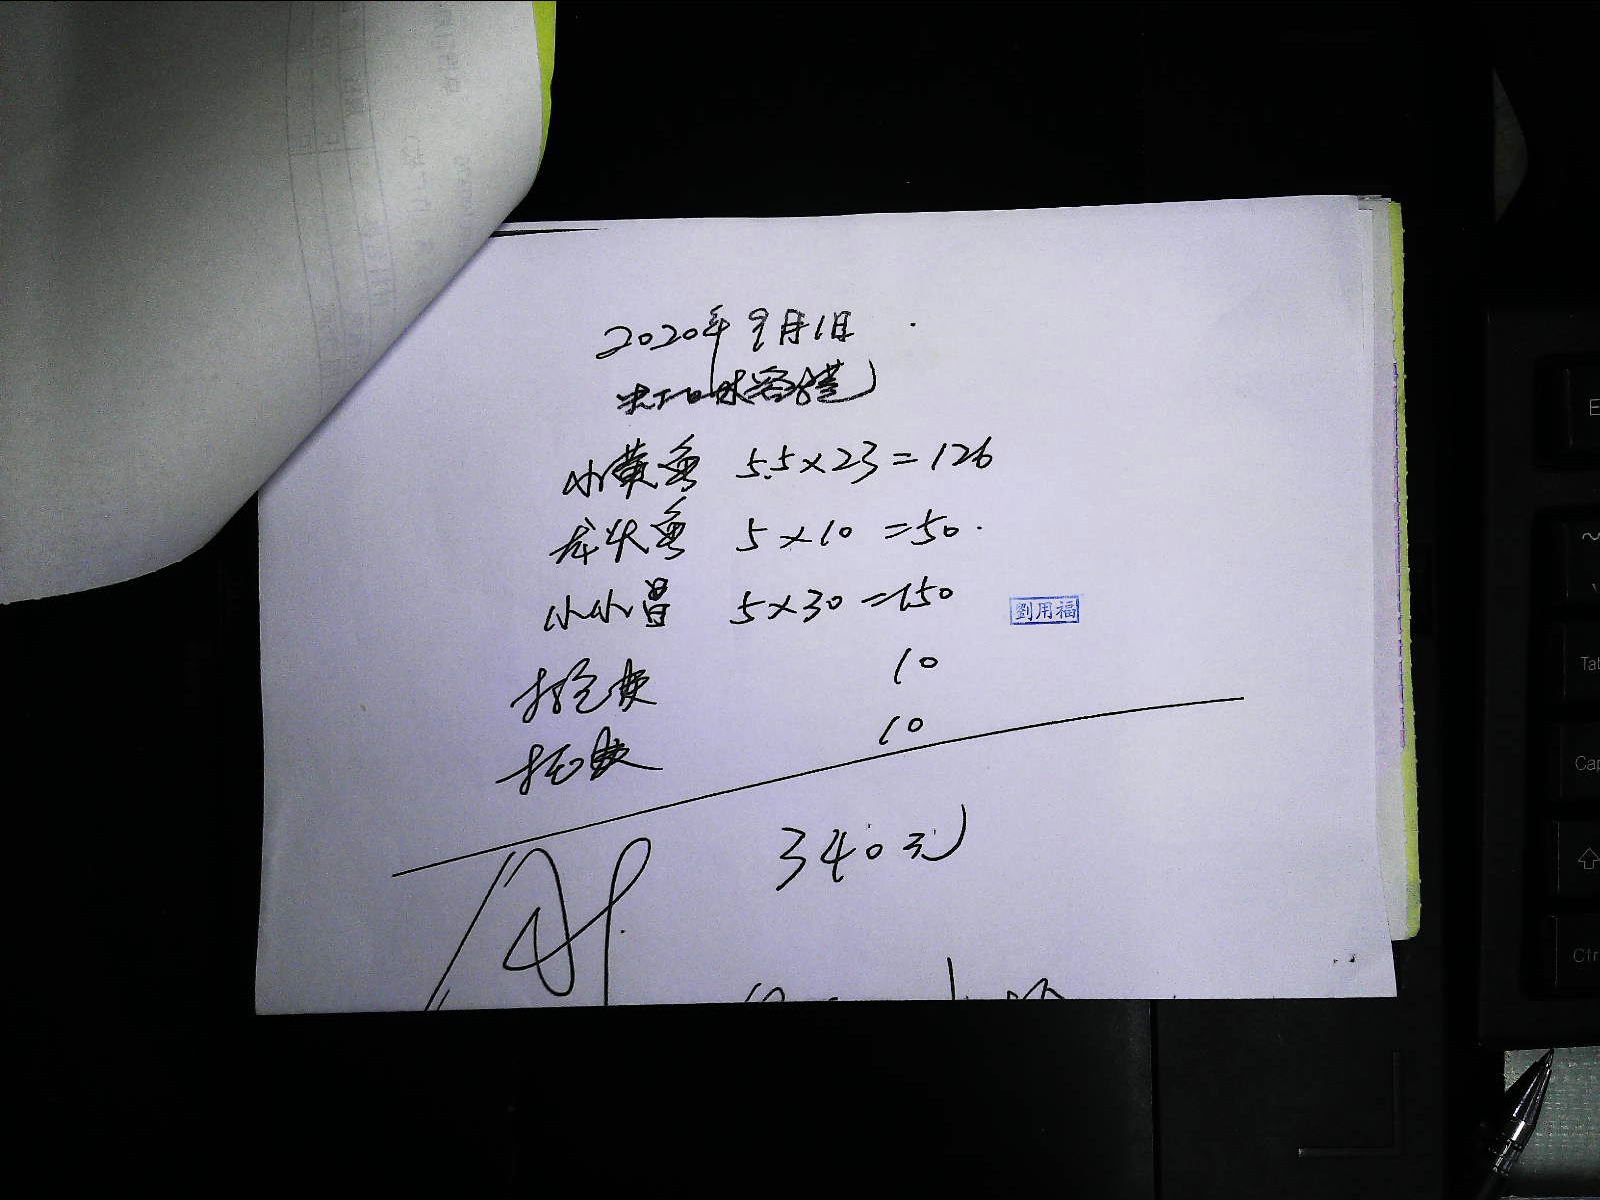 2020年9月1日
小黄鱼 5.5×23=126
龙头鱼 5×10=50
小小昌 5×30=150
劉用福
打包费 10
托费 10
340元